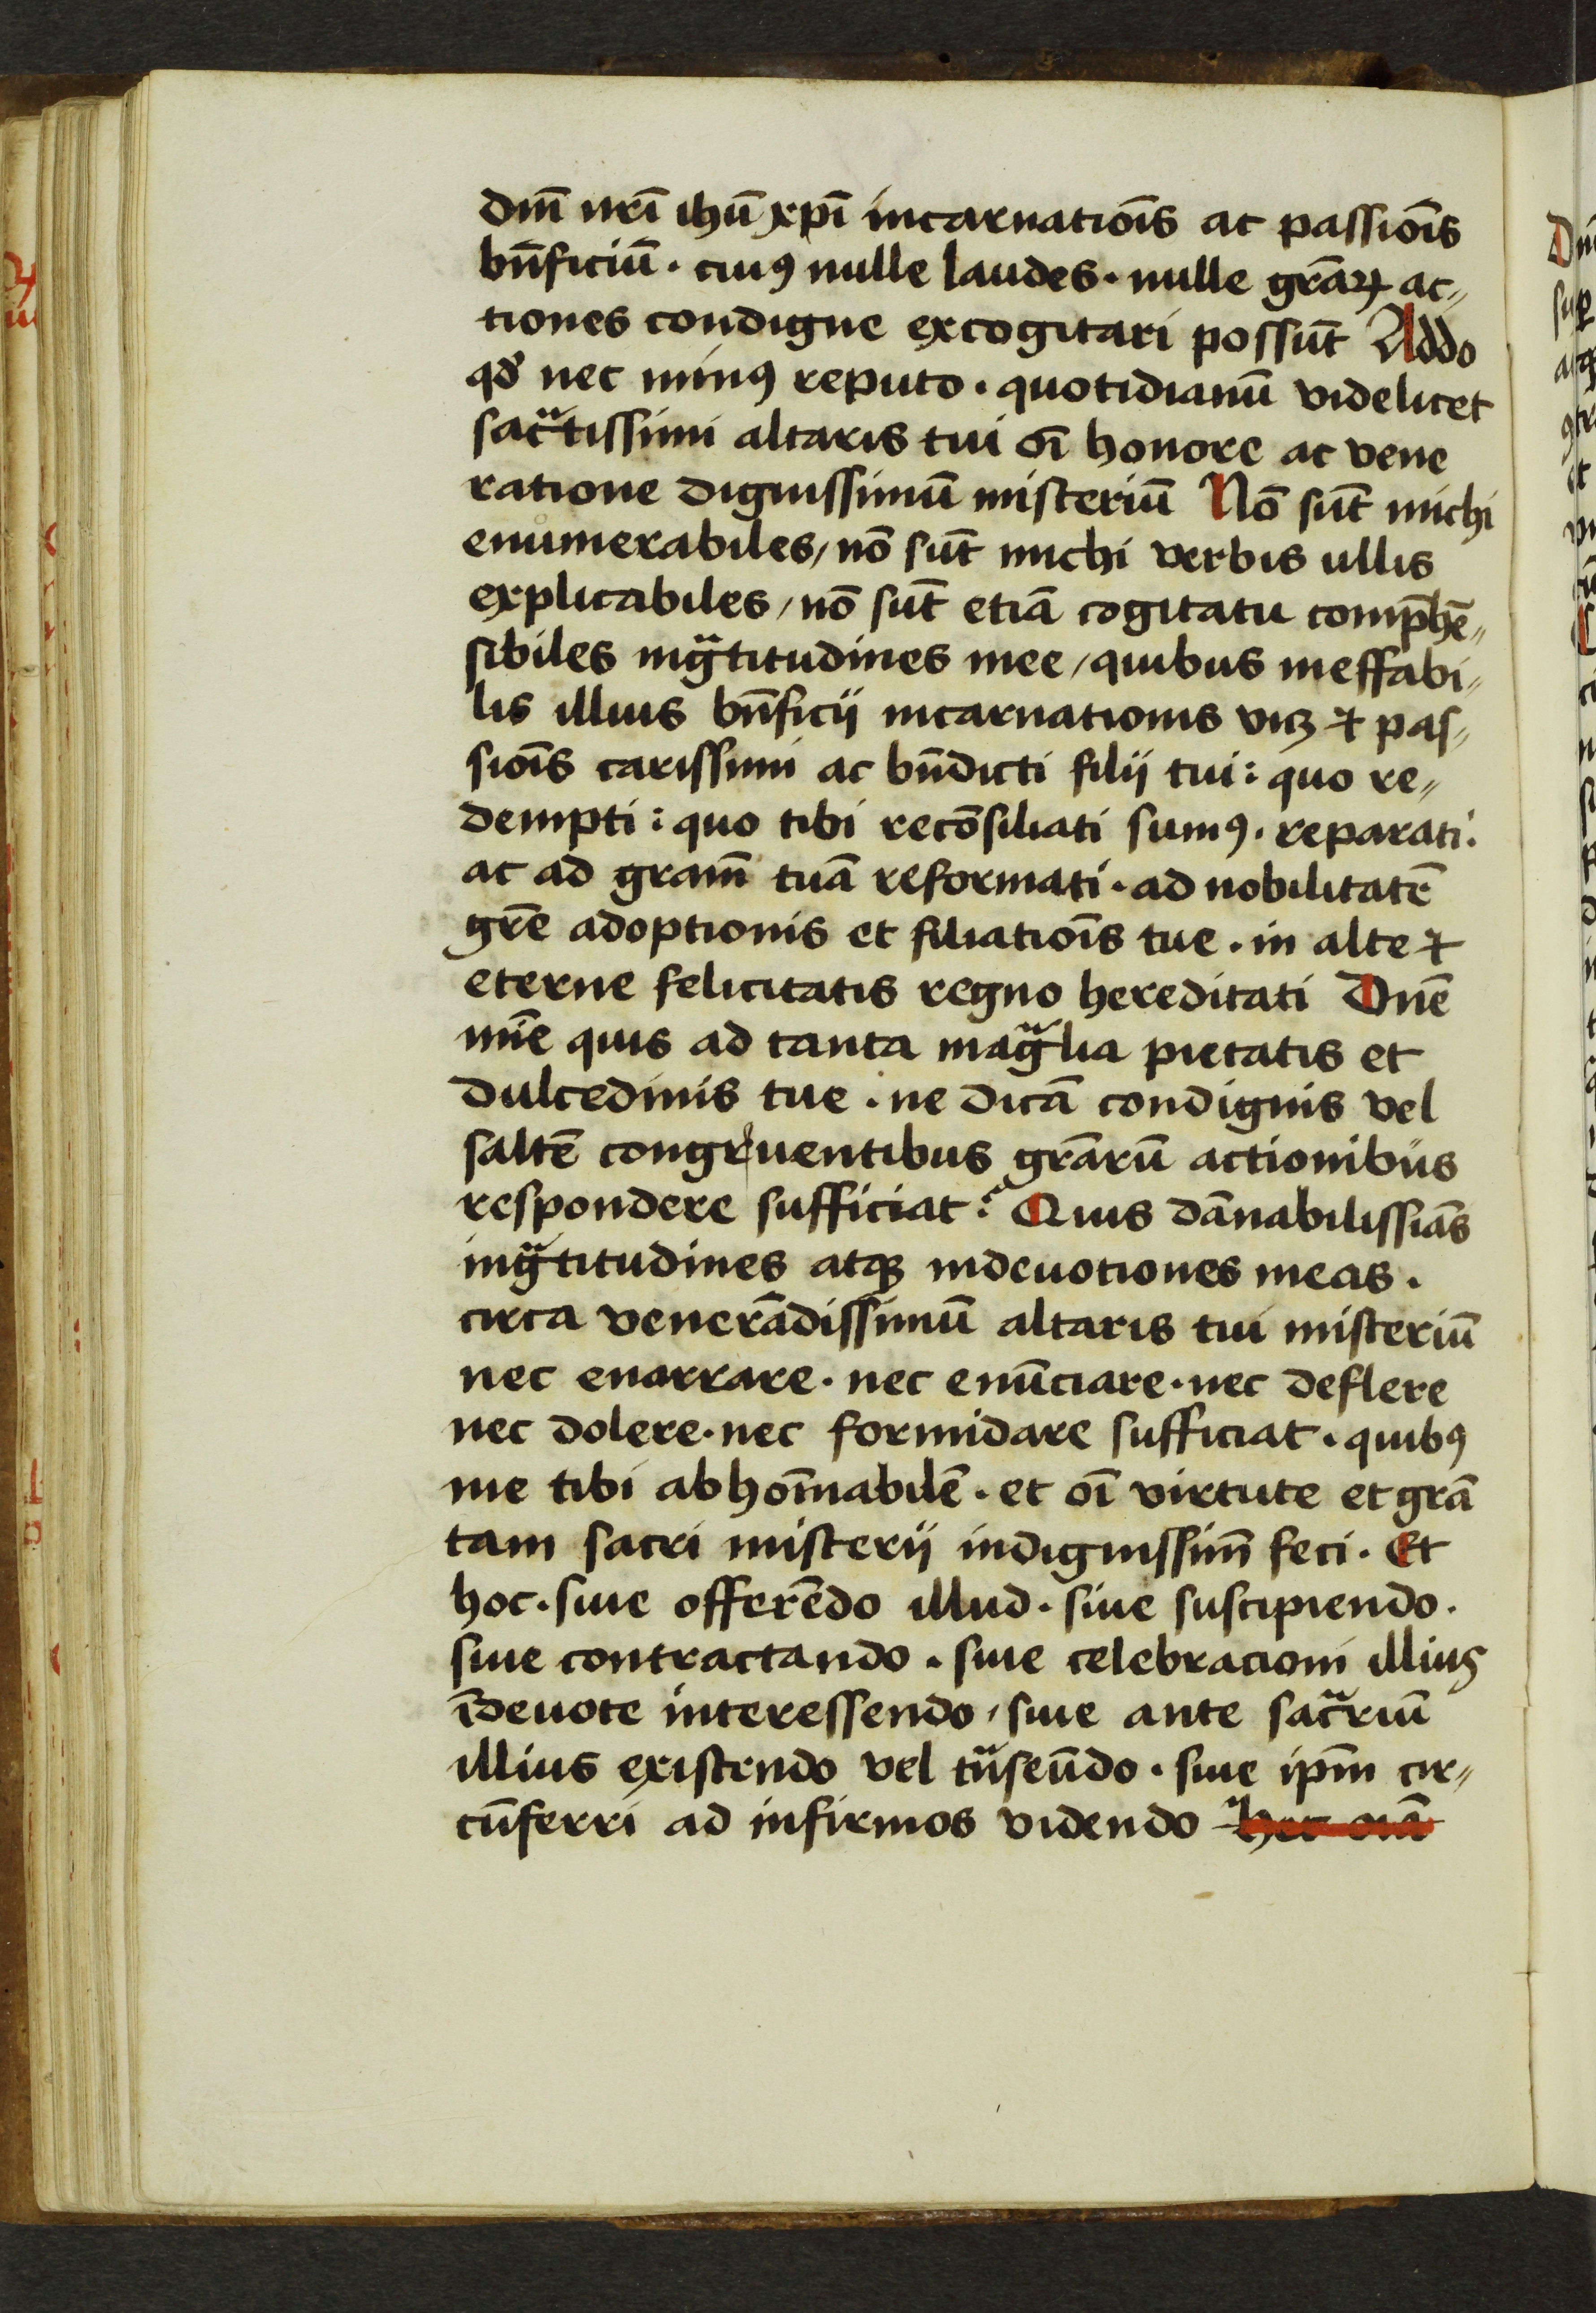 dnī nrī ihū xpī incarnatiōīs ac passiōīs
bn̄ficiū · cuiꝰ nulle laudes · nulle grāꝝ ac„
tiones condigne excogitari possūt Addo
qd̛ nec minꝰ reputo · quotidianū videlicet
sacᷓtissimi altaris tui oī honore ac vene
ratione dignissimū misteriū Nō sūt michi
enumerabiles / nō sūt michi verbis ullis
explicabiles / nō sūt etiā cogitatu comp̄hē„
sibiles ingᷓtitudines mee / quibus ineffabi„
lis illius bn̄ficij incarnationis viꝫ ⁊ pas„
siōis carissimi ac bn̄dicti filij tui : quo re„
dempti : quo tibi recōsiliati sumꝰ · reparati ·
ac ad gram̄ tuā reformati · ad nobilitatē
grē adoptionis et filiatiōīs tue · in alte ⁊
eterne felicitatis regno hereditati Dnē
mīe quis ad tanta magᷓlia pietatis et
dulcedinis tue · ne dicā condignis vel
saltē congruentibus grārū actionibus
respondere sufficiat : Quis dānabilissiās
ingᷓtitudines atqꝫ indeuotiones meas ·
circa venerādissimū altaris tui misteriū
nec enarrare · nec enūciare · nec deflere
nec dolere · nec formidare sufficiat · quibꝰ
me tibi abhoīnabilē · et oī virtute et grā
tam sacri misterij indignissim̄ feci · Et
hoc · siue offerēdo illud · siue suscipiendo ·
siue contractando · siue celebracioni illius
īdeuote interessendo / siue ante sacᷓriū
illius existendo vel tᷓnseūdo · siue ip̄m cir„
cūferri ad infirmos videndo hec oīa